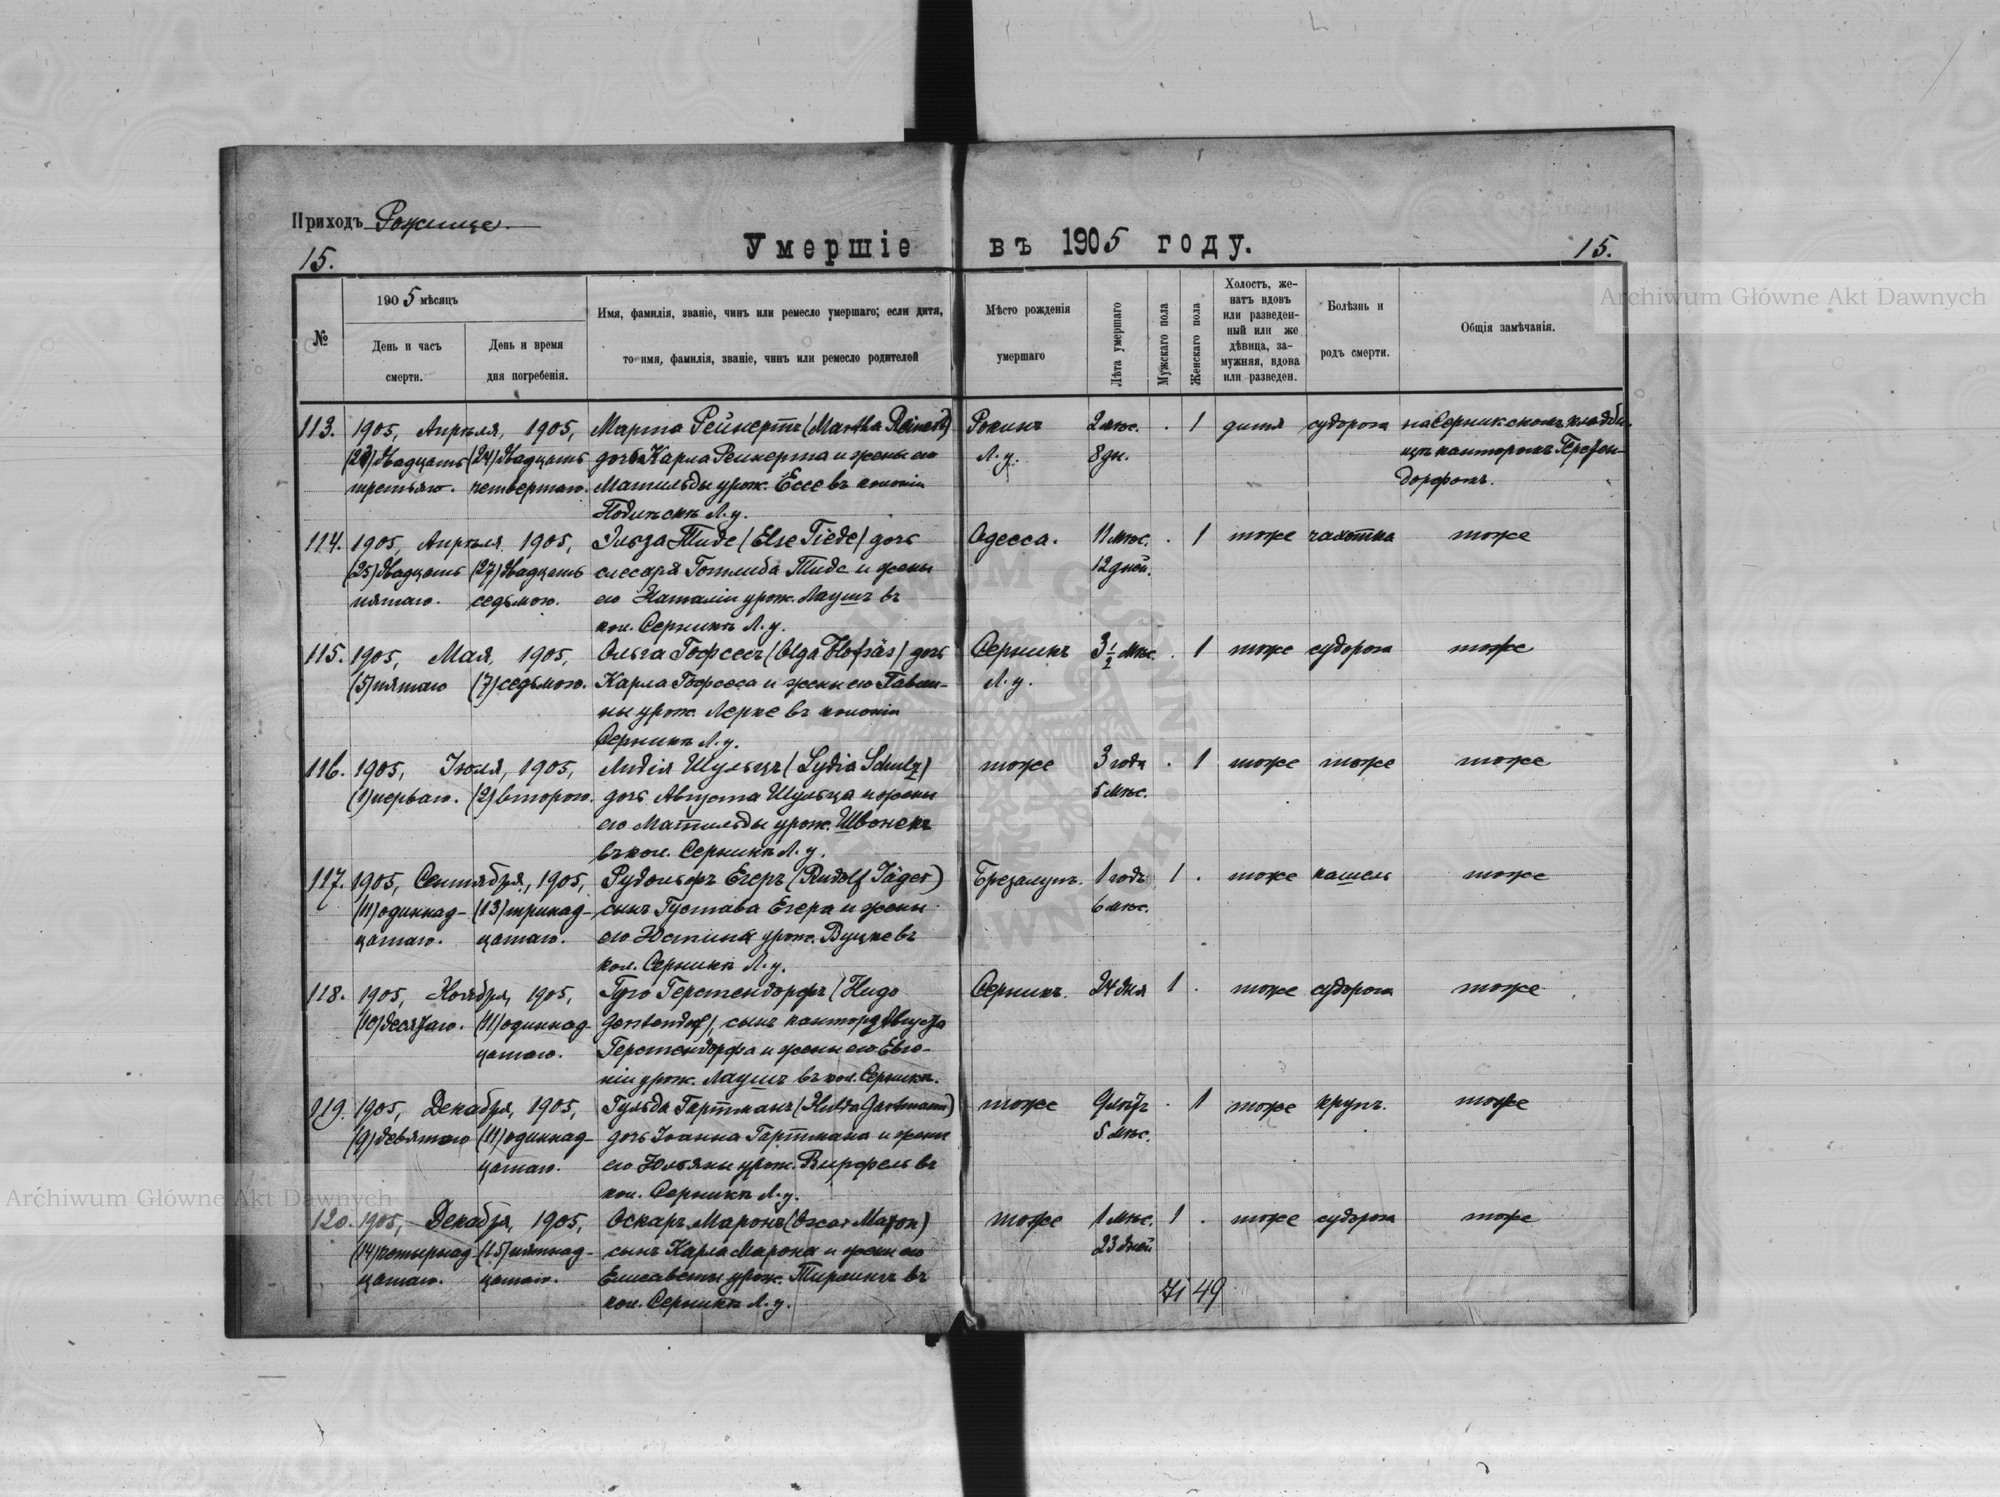 Приходъ Рожище.
15.
Умершіе въ 1905 году.
15.
№
1905 мѣсяцъ
День и часъ
смерти.
День и время
дня погребенія.
Имя, фамилія, званіе, чинъ или ремесло умершаго; если дитя,
то имя, фамилія, званіе, чинъ или ремесло родителей
Мѣсто рожденія
умершаго
Лѣта умершаго
Мужскаго пола
Женскаго пола
Холостъ, же-
натъ вдовъ
или разведен-
ный или же
дѣвица, за-
мужняя, вдова
или разведен.
Болѣзнь и
родъ смерти.
Общія замѣчанія.
113. 1905, Апрѣля, 1905, Марта Рейнертъ (Martha Reinert) Рокинъ 2 мѣс. . 1 дитя судорога на Серникскомъ кладби-
(23) двадцать (24) двадцать дочь Карла Рейнерта и жены его Л. у. 8 дн. щѣ канторомъ Герстен-
третьяго. четвертаго. Матильды урож. Ессе въ колоніи дорфомъ.
Л. у.
114. 1905, Апрѣля, 1905, Эльза Тиде (Else Tiede) дочь Одесса. 11 мѣс. . 1 тоже чахотка тоже
(25) двадцать (27) двадцать слесаря Готлиба Тиде и жены 12 дней.
пятаго. седьмого. его Наталіи урож. Лаушъ въ
кол. Серникѣ Л. у.
115. 1905, Мая, 1905, Ольга Гофсесъ (Olga Hofsäs) дочь Серникъ 3 1/2 мѣс. . 1 тоже судорога тоже
(5) пятаго (7) седьмого. Карла Гофсеса и жены его Л. у.
ны урож. Лерке въ колоніи
Серникъ Л. у.
116. 1905, Іюля, 1905, Лидія Шульцъ (Lydia Schulz) тоже 3 года . 1 тоже тоже тоже
(1) перваго. (2) второго. дочь Августа Шульца и жены 5 мѣс.
его Матильды урож. Швонекъ
въ кол. Серникѣ Л. у.
117. 1905, Сентября, 1905, Рудольфъ Егеръ (Rudolf Jäger) Брезалупъ. 1 годъ 1 . тоже кашель тоже
(11) одиннад- (13) тринад- сынъ Густава Егера и жены 6 мѣс.
цатаго. цатаго. его Юстины урож. Вуцке въ
кол. Серникѣ Л. у.
118. 1905, Ноября, 1905, Гуго Герстендорфъ (Hugo Серникъ. 24 дня 1 . тоже судорога тоже
(10) десятаго. (11) одиннад- Gerstendorf), сынъ кантора Августа
цатаго. Герстендорфа и жены его Евге-
ніи урож. Лаушъ въ кол. Серникѣ.
119. 1905, Декабря, 1905, Гульда Гартманъ (Hulda Gartmann) тоже 9 лѣтъ . 1 тоже крупъ. тоже
(9) девятаго (11) одиннад- дочь Іоанна Гартмана и жены 5 мѣс.
цатаго. его Юльяны урож. Вирфель въ
кол. Серникѣ Л. у.
120. 1905, Декабря, 1905, Оскаръ Маронъ (Oscar Maron) тоже 1 мѣс. 1 . тоже судорога тоже
(14) четырнад- (15) пятнад- сынъ Карла Марона и жены его 23 дней
цатаго. цатаго. Елисаветы урож. въ
кол. Серникѣ Л. у.
71 49
Archiwum Główne Akt Dawnych
Archiwum Główne Akt Dawnych